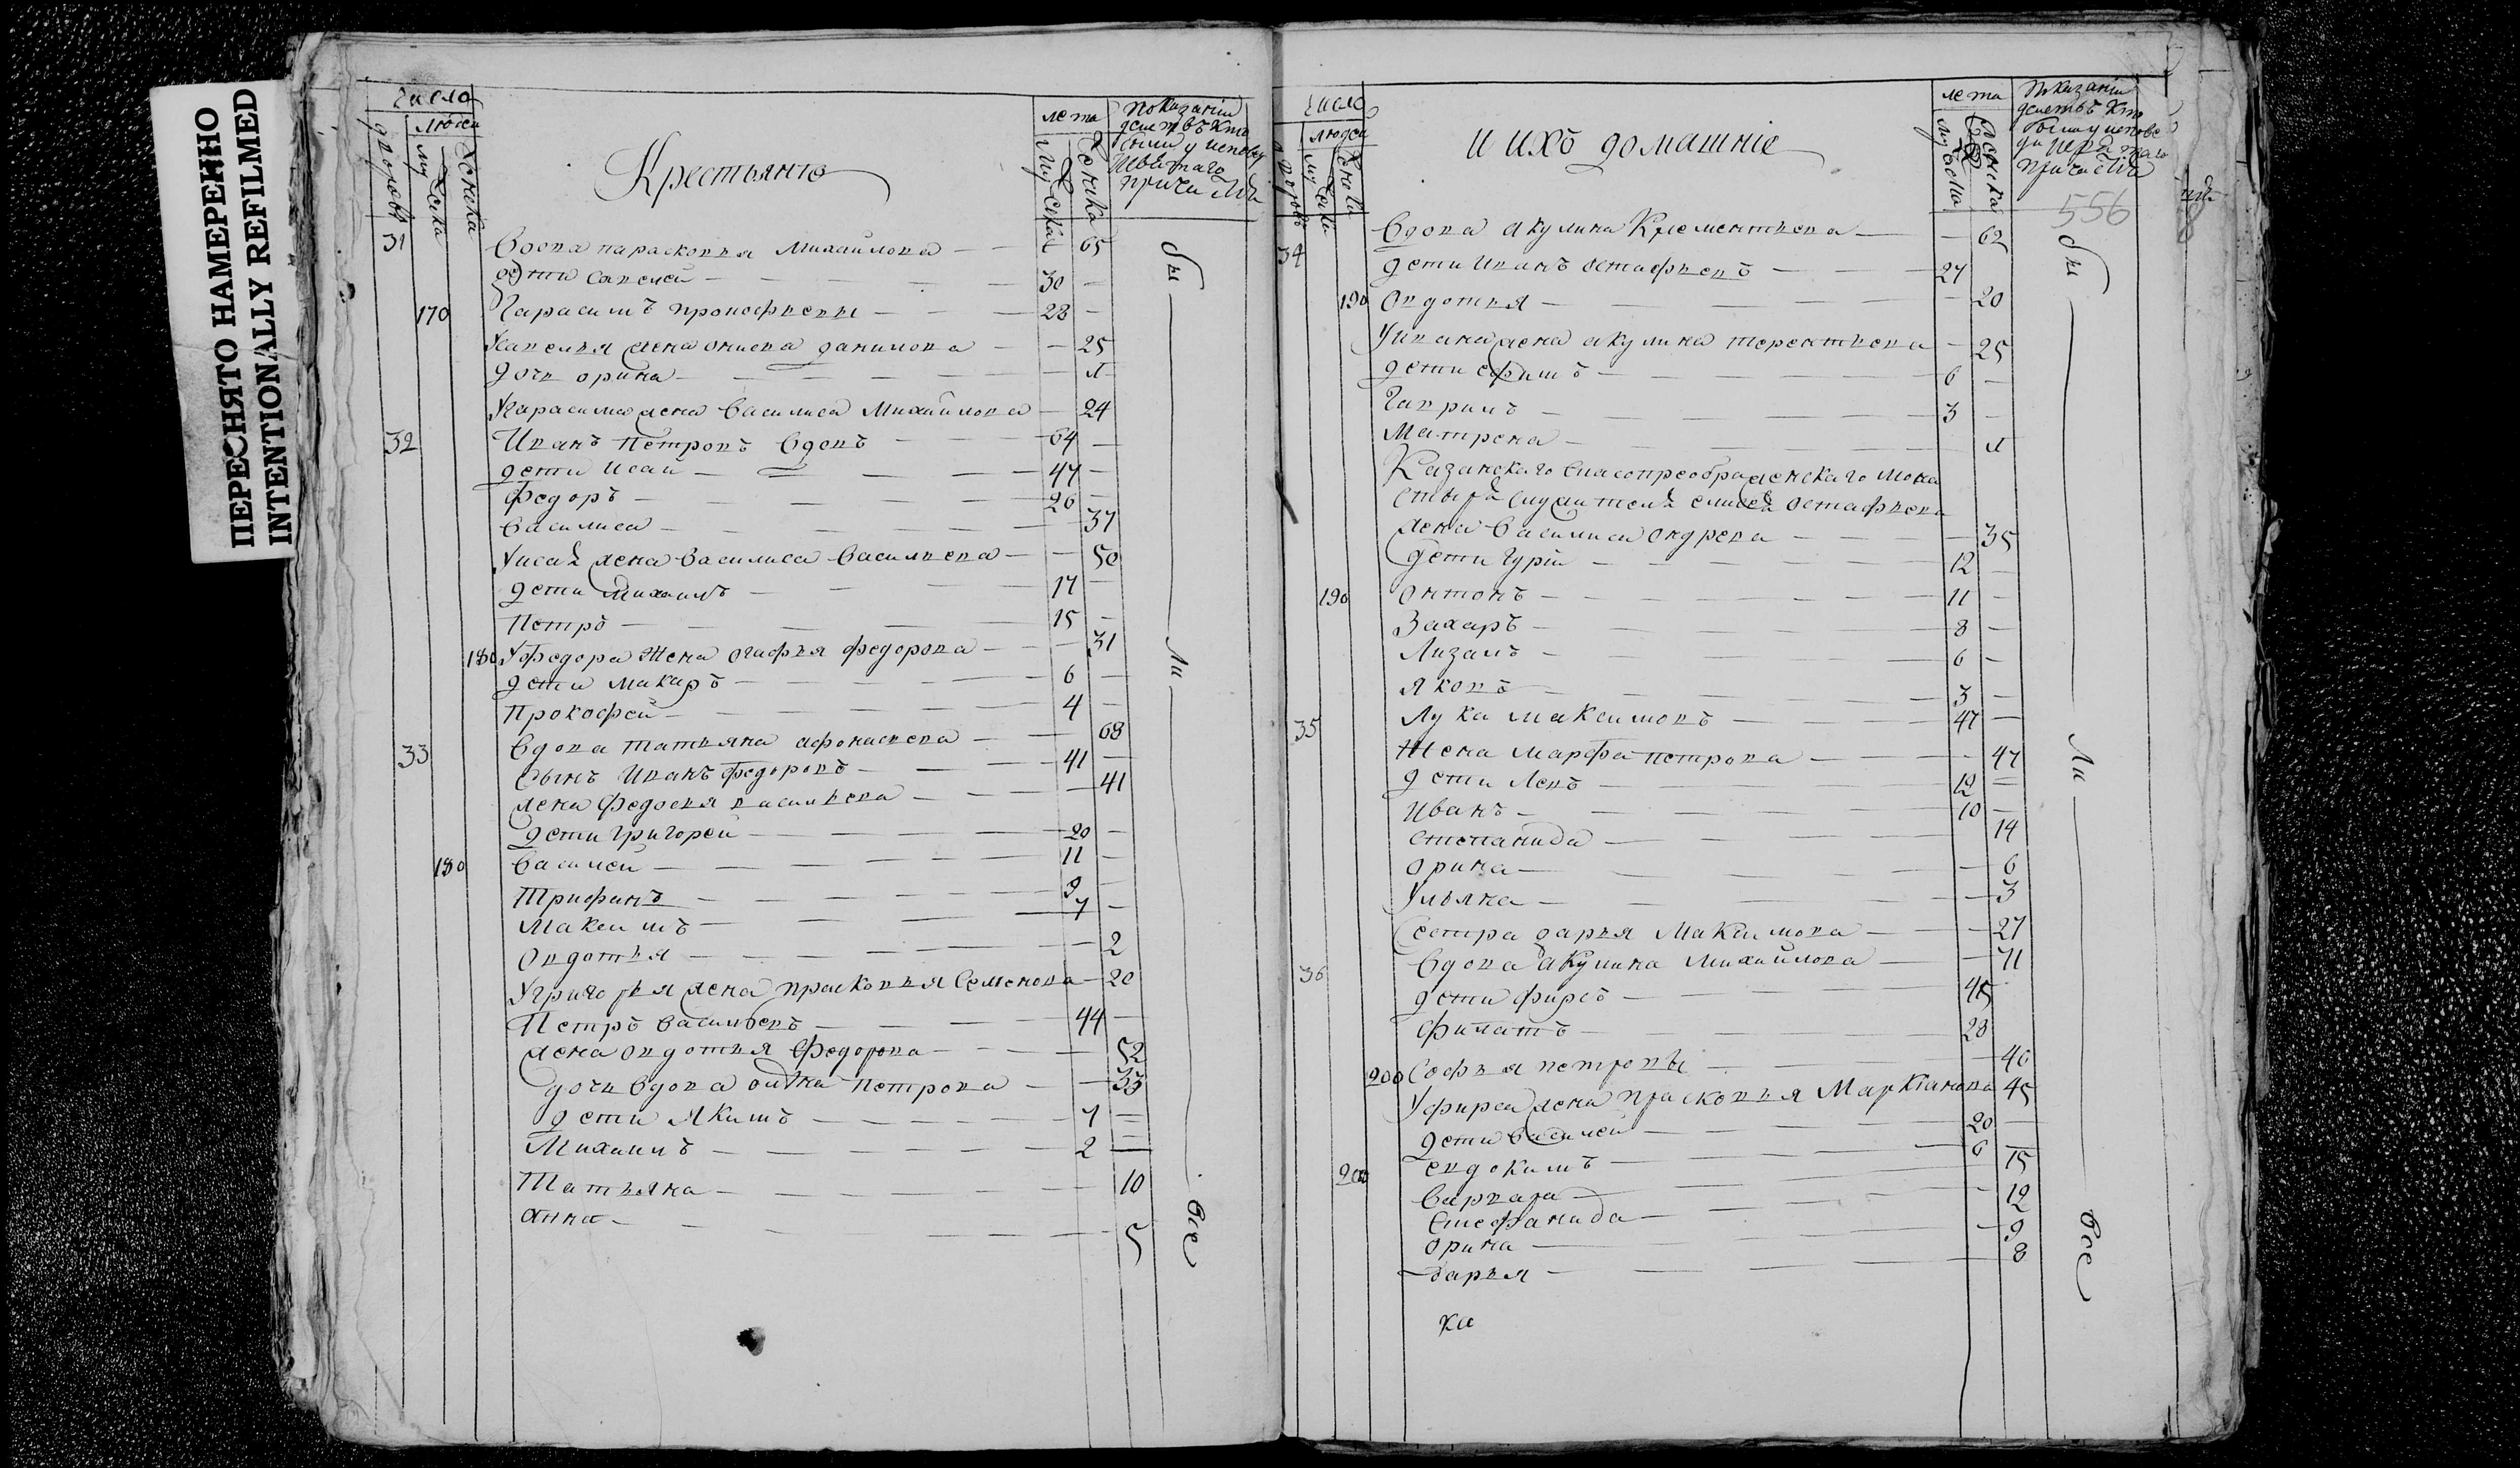 ПЕРЕСНЯТО НАМЕРЕННО
INTENTIONALLY REFILMED
Число
Людей
дворовъ
Мужска
Женска
Крестьяне
лета
Мужска
Женска
показаніи
действъ кто
были у испове
ди и святаго
причастія
31 Вдова параскопья Михайлова — 65
дети савелей — 30 —
170 Гарасимъ прокофьевы — 28 —
Усавелья жена онисья данилова — 25
дочь орина — 1
Угарасима жена Василиса Михайлова — 24
32 Иванъ Петровъ вдовъ — 64 —
дети Исаи — 47 —
Федоръ — 26 —
Василиса — 37
Уисая жена Василиса Васильева — 50
дети Михаилъ — 17 —
Петръ — 15 —
180 Уфедора Жена огафья федорова — 31
дети макаръ — 6 —
Прокофей — 4 —
33 Вдова татьяна афонасьева — 68
Сынъ Иванъ федоровъ — 41 —
жена федосья васильева — 41
дети григорей — 20 —
180 Василей — 11 —
Трифинъ — 9 —
Максимъ — 7 —
Овдотья — 2
Угригорья жена прасковья Семенова — 20
Петръ васильевъ — 44 —
жена овдотья федорова — 52
дочь вдова Петрова — 33
дети Якимъ — 7 —
Михаилъ — 2 —
Татьяна — 10
анна — 5
бы
ли
все
Число
людей
дворовъ
Мужски
Женски
и ихъ домашніе
лета
мужска
женска
Показаніи
действъ кто
были у испове
ди и святаго
причастія
556
34 Вдова акулина Клементьева — 62
дети Иванъ остафьевъ — 27
190 Овдотья — 20
Уивана жена акулина терентьева — 25
дети ефимъ — 6 —
Гаврилъ — 3 —
Матрена — 1
Казанскаго Спасопреображенскаго мона
стыря служителя елисея остафьева
жена Василиса ондреева — 35
дети Гурій — 12 —
190 онтонъ — 11 —
Захаръ — 8 —
Лизаръ — 6 —
яковъ — 3 —
35 Лука максимовъ — 47 —
Жена марфа петрова — 47
дети Левъ — 12 —
Иванъ — 10 —
степанида — 14
орина — 6
Ульяна — 3
Сестра дарья Максимова — 27
36 Вдова акулина Михайлова — 71
дети фирсъ — 45
филатъ — 28
200 Софья петровы — 46
Уфирса жена прасковья Маркианова 45
дети василей — 20 —
200 евдокимъ — 6
Варвара — 15
Стефанида — 12
орина — 9
Дарья — 8
бы
ли
все